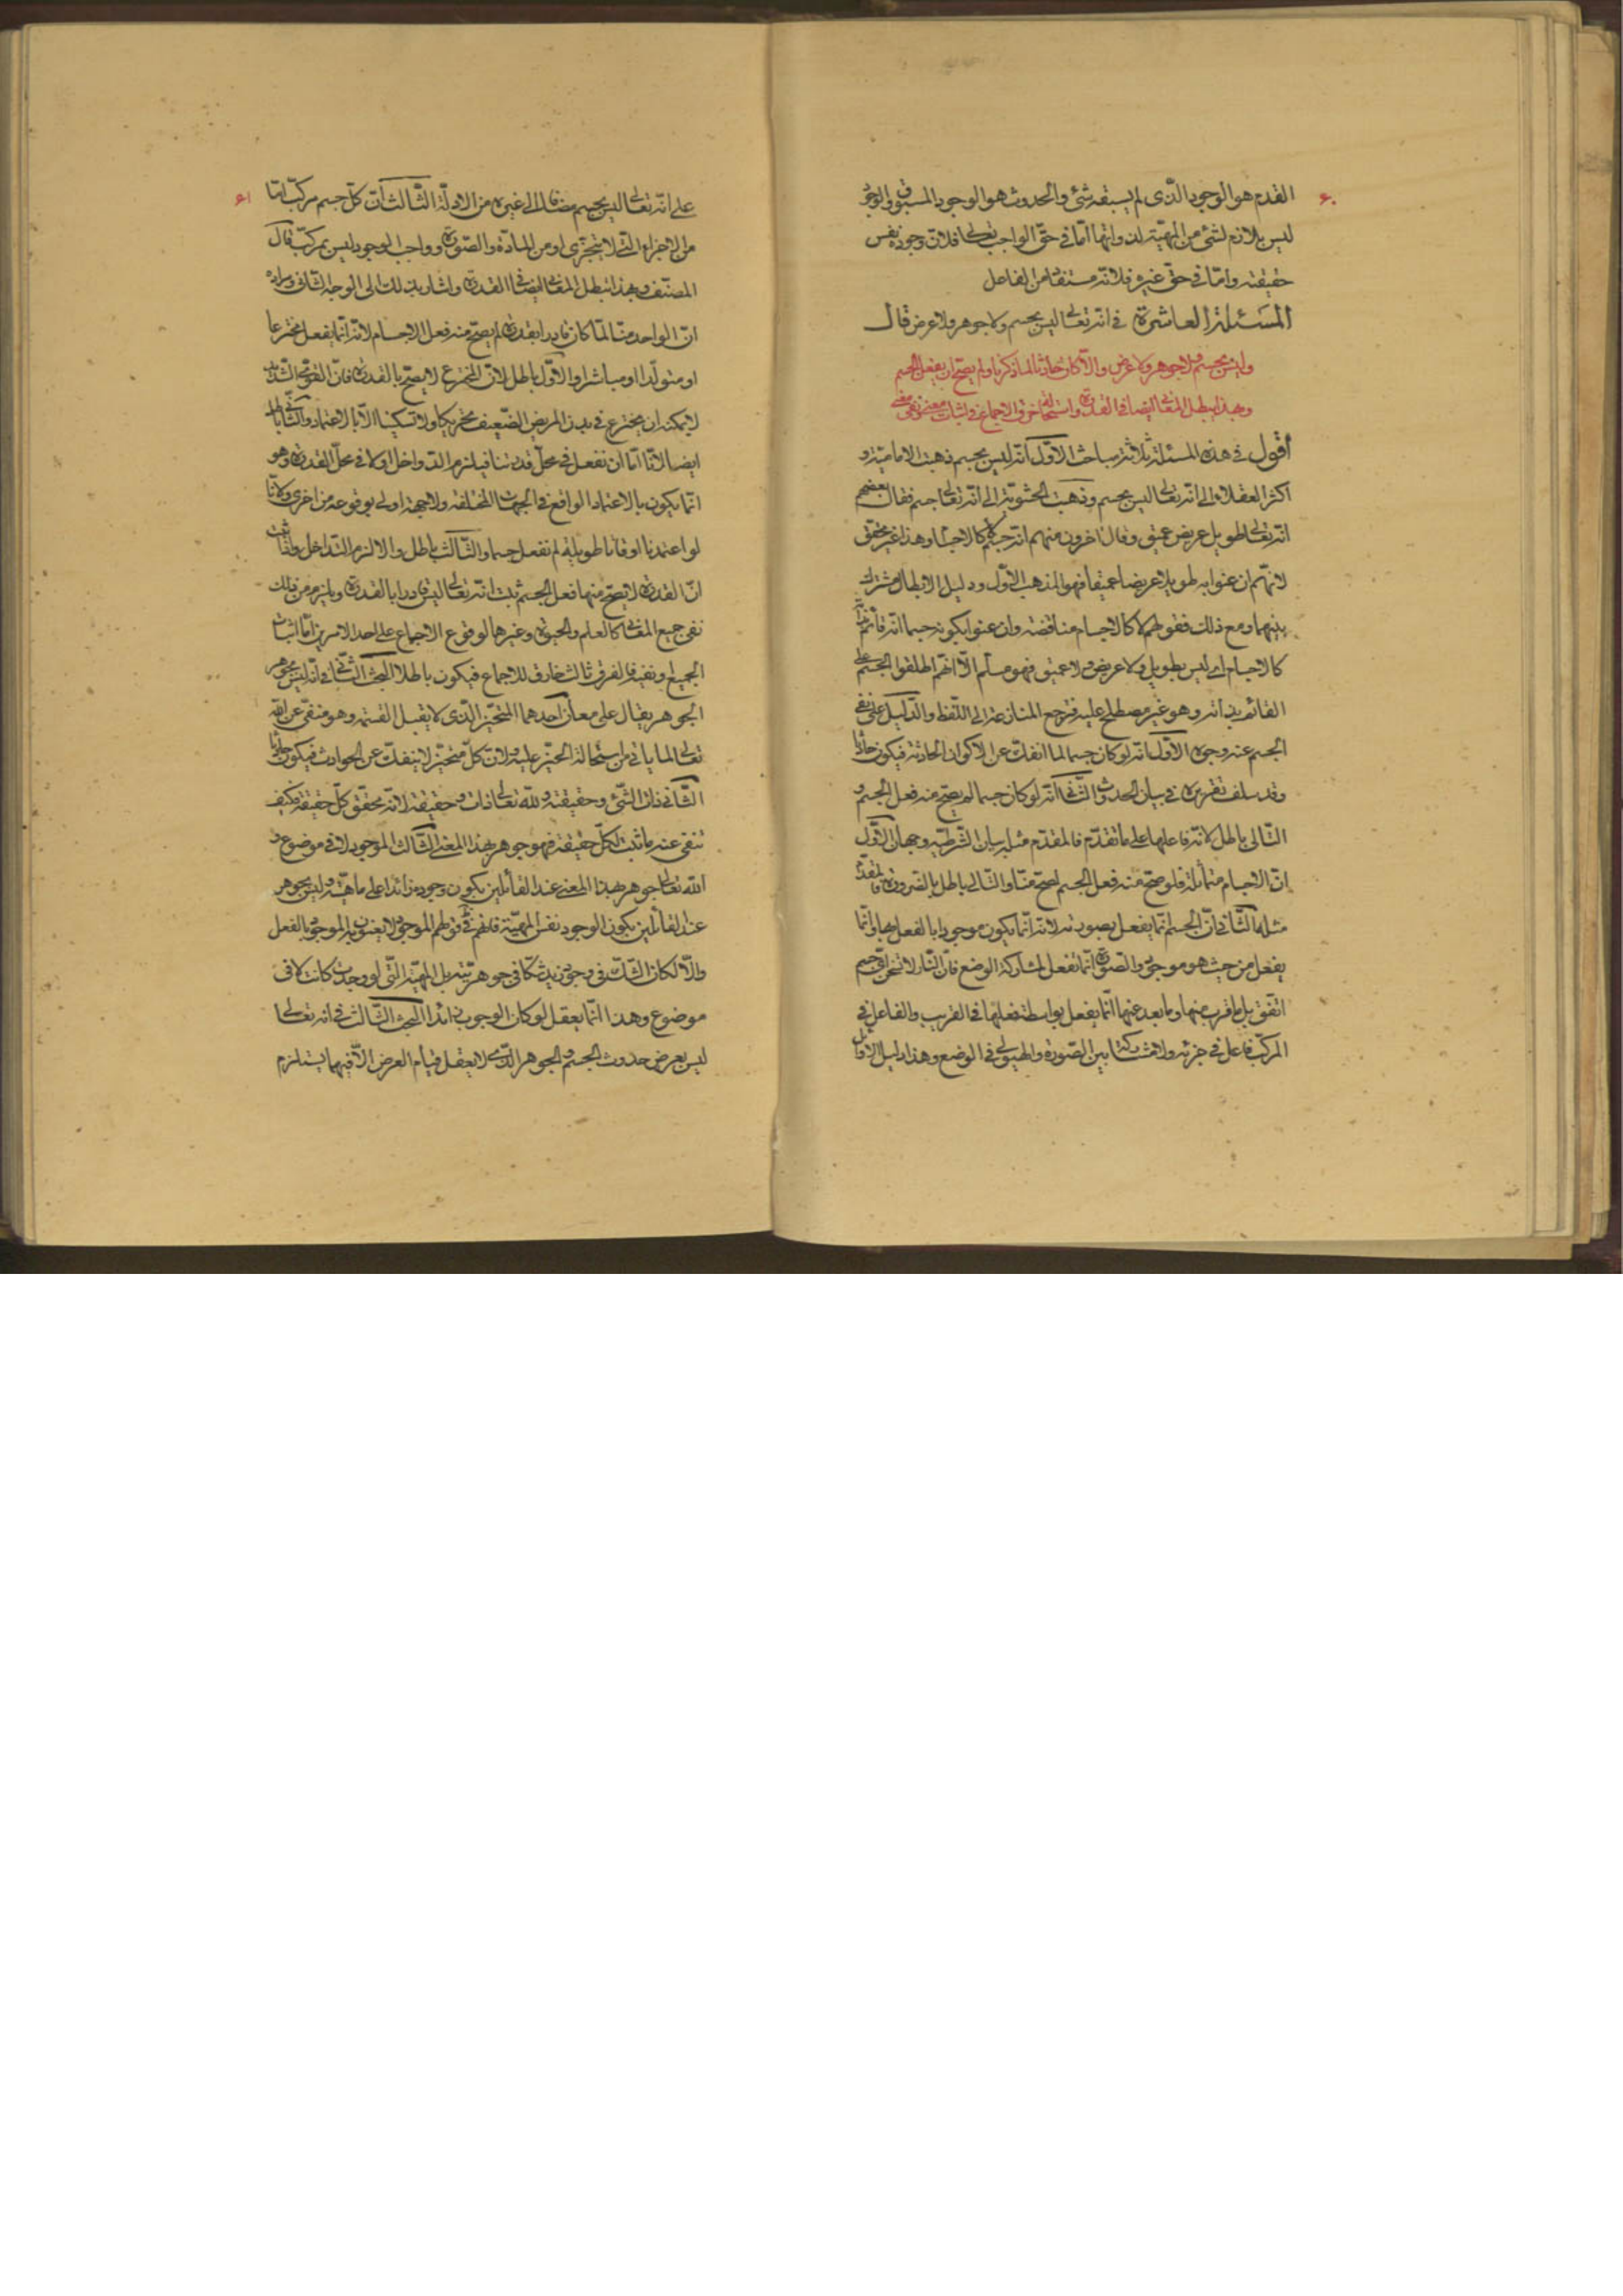 ۶۰
القدم هو الوجود الذى لم يسبقه شئ والحدوث هو الوجود المسبوق والوجود
ليس بلازم لشئ من المهية لذواتها امّا فى حقّ الواجب تعالى فلانّ وجوده نفس
حقيقته وامّا فى حقّ غيره فلانّه مستفاد من الفاعل
المسئلة العاشرة فى انّه تعالى ليس بجسم ولا جوهر ولا عرض قال
وليس بجسم ولا جوهر ولا عرض والّا كان حادثا لما ذكرنا ولم يصحّ ان يفعل الجسم
وبهذا يبطل المعانى ايضا فى القدرة واستحالة خرق الاجماع فى اثبات معنى ونفى معنى
أقول فى هذه المسئلة ثلاثة مباحث الاوّل انّه ليس بجسم ذهبت الامامية و
اكثر العقلاء الى انّه تعالى ليس بجسم وذهبت الحشويّة الى انّه تعالى جسم فقال بعضهم
انّه تعالى طويل عريض عميق وقال اخرون منهم انّه جسم لا كالاجسام وهذا غير محقّق
لانّهم ان عنوا به طويلا عريضا عميقا فهو المذهب الاوّل ودليل الابطال مشترك
بينهما ومع ذلك فقولهم لا كالاجسام مناقضة وان عنوا بكونه جسما انّه قائم بذاته
كالاجسام اى ليس بطويل ولا عريض ولا عميق فهو مسلّم الّا انّهم اطلقوا الجسم على
القائم بذاته وهو غير مصطلح عليه فترجع المنازعة الى اللّفظ والدّليل على نفى
الجسم عنه وجوه الاوّل انّه لو كان جسما لما انفكّ عن الاكوان الحادثة فيكون حادثا
وقد سلف تقريره فى بيان الحدوث الثّانى انّه لو كان جسما لم يصحّ منه فعل الجسم و
التّالى باطل لانّه فاعلها على ما تقدّم فالمقدّم مثله بيان الشّرطيّة وجهان الاوّل
انّ الاجسام متماثلة فلو صحّ منه فعل الجسم لصحّ منّا والتّالى باطل بالضرورة فالمقدّم
مثله الثّانى انّ الجسم انّما يفعل بصورته لانّه انّما يكون موجودا بالفعل بها وانّما
يفعل من حيث هو موجود والصّورة انّما تفعل بمشاركة الوضع فانّ النّار لا تسخن اىّ جسم
اتّفق بل ما قرب منها وما بعد عنها انّما يفعل بواسطة فعلها فى القريب والفاعل فى
المركّب فاعل فى جزئه ولا مشاركة بين الصّورة والهيولى فى الوضع وهذا دليل الاوائل
۶۱
على انّه تعالى ليس بجسم مضافا الى غيره من الادلّة الثّالث انّ كلّ جسم مركّب امّا
من الاجزاء التى لا يتجزّى او من المادّة والصّورة وواجب الوجود ليس بمركّب قال
المصنّف وبهذا يبطل المعانى ايضا فى القدرة واشار بذلك الى الوجه الثّانى ومراده
انّ الواحد منّا لمّا كان قادرا بقدرة لم يصحّ منه فعل الاجسام لانّه انّما يفعل مخترعا
او متولّدا او مباشرا والاوّل باطل لانّ المخترع لا يصحّ بالقدرة فانّ القوىّ الشّديد
لا يمكنه ان يخترع فى بدن المريض الضّعيف تحريكا ولا تسكينا الّا بالاعتماد والثّانى باطل
ايضا لانّا امّا ان نفعل فى محلّ قدرتنا فيلزم التداخل او لا فى محلّ القدرة وهو
انّما يكون بالاعتماد الواقع فى الجهات المختلفة ولا جهة اولى بوقوعه من اخرى ولانّا
لو اعتمدنا اوقاتا طويلة لم نفعل جسما والثّالث باطل والا لزم التّداخل واذا ثبت
انّ القدرة لا يصحّ منها فعل الجسم ثبت انّه تعالى ليس قادرا بالقدرة ويلزم من ذلك
نفى جميع المعانى كالعلم والحيوة وغيرها لوقوع الاجماع على احد الامرين امّا اثبات
الجميع او نفيه فالفرق ثالث خارق للاجماع فيكون باطلا البحث الثّانى فى انّه ليس بجوهر
الجوهر يقال على معان احدهما المتحيّز الّذى لا يقبل القسمة وهو منفىّ عن اللّه
تعالى لما ياتى من استحالة التحيّز عليه ولانّ كلّ متحيّز لا ينفكّ عن الحوادث فيكون حادثا
الثّانى ذات الشّئ وحقيقته وللّه تعالى ذات وحقيقة لانّه محقّق كلّ حقيقة فكيف
تنفى عنه ما ثبت لكلّ حقيقة فهو جوهر بهذا المعنى الثّالث الموجود لا فى موضوع و
اللّه تعالى جوهر بهذا المعنى عند القائلين بكون وجوده زائدا على ماهيّته وليس بجوهر
عند القائلين بكون الوجود نفس المهيّة فانّهم فى قولهم الموجود لا يعنون به الموجود بالفعل
والّا لكان الشّكّ فى وجود زيد شكّا فى جوهريّته بل المهيّة الّتى لو وجدت كانت لا فى
موضوع وهذا انّما يعقل لو كان الوجود زائدا البحث الثّالث فى انّه تعالى
ليس بعرض حدوث الجسم والجوهر الّذى لا يعقل قيام العرض الّا فيهما يستلزم